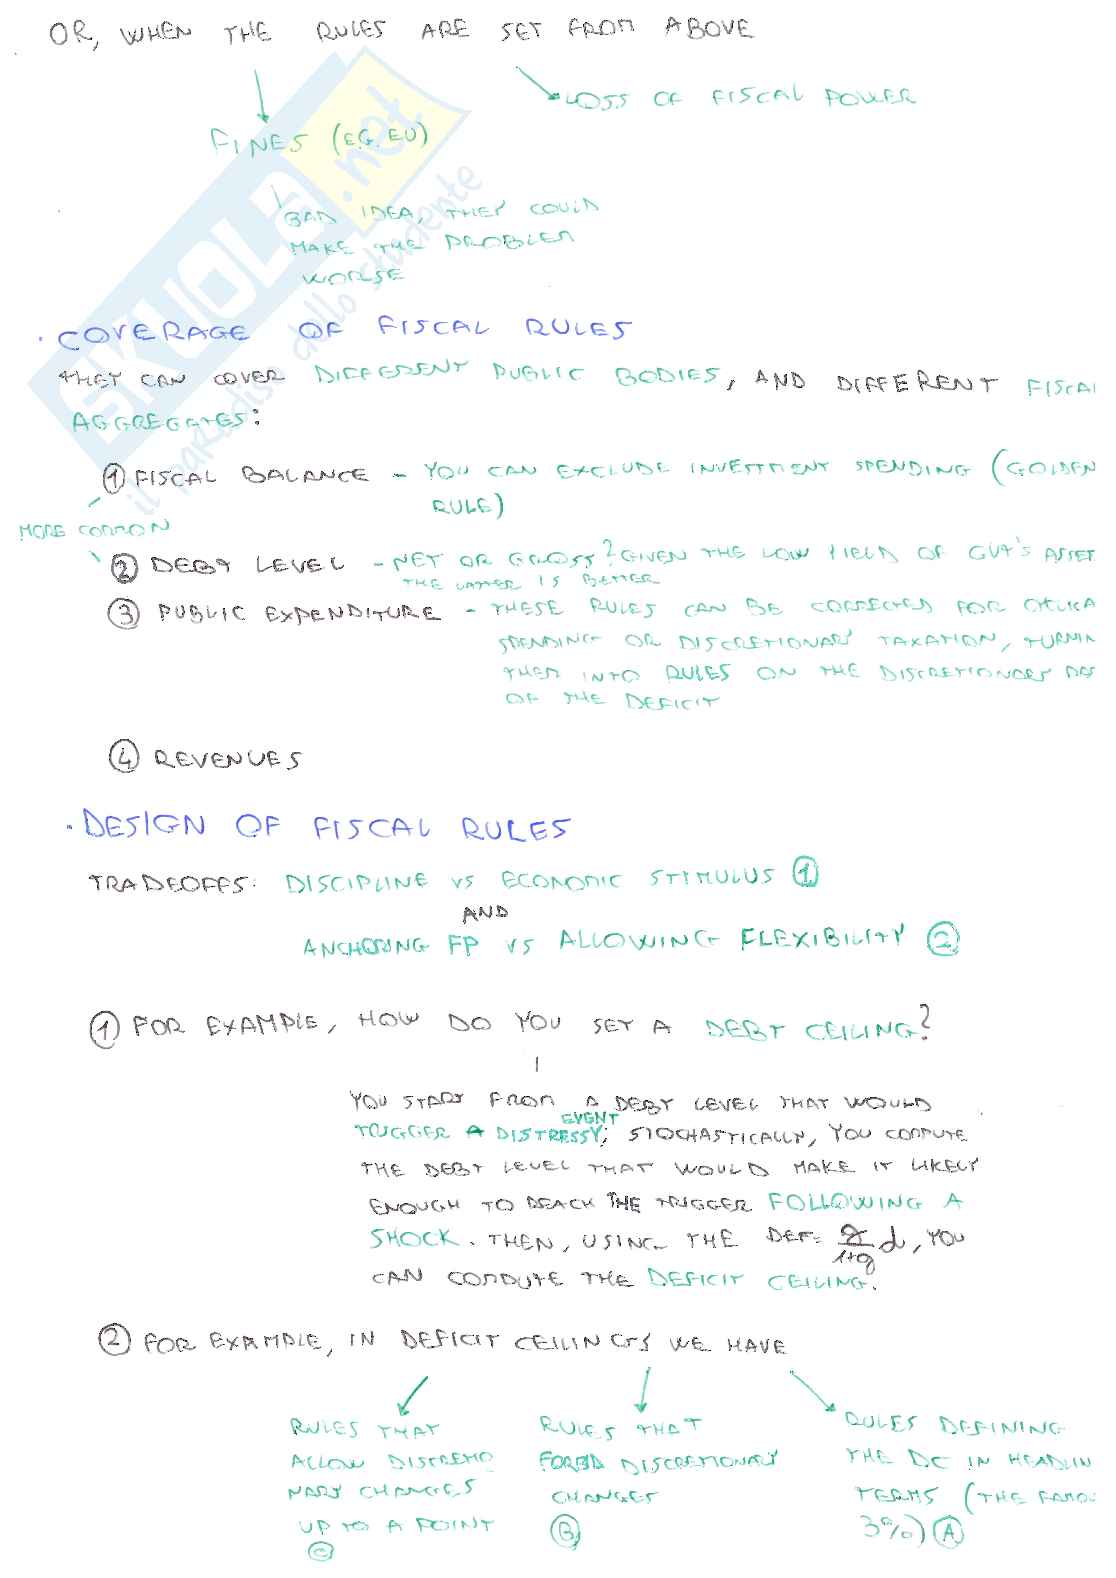 OR, WHEN THE RULES ARE SET FROM ABOVE
LOSS OF FISCAL POWER
FINES (E.G. EU)
BAD IDEA, THEY COULD
MAKE THE PROBLEM
WORSE
· COVERAGE OF FISCAL RULES
THEY CAN COVER DIFFERENT PUBLIC BODIES, AND DIFFERENT FISCAL
AGGREGATES:
① FISCAL BALANCE - YOU CAN EXCLUDE INVESTMENT SPENDING (GOLDEN
RULE)
MORE COMMON
② DEBT LEVEL - NET OR GROSS? GIVEN THE LOW YIELD OF GVT'S ASSET
THE LATTER IS BETTER
③ PUBLIC EXPENDITURE - THESE RULES CAN BE CORRECTED FOR CYCLICA
SPENDING OR DISCRETIONARY TAXATION, TURNIN
THEM INTO RULES ON THE DISCRETIONARY
OF THE DEFICIT
④ REVENUES
· DESIGN OF FISCAL RULES
TRADEOFFS: DISCIPLINE VS ECONOMIC STIMULUS ①
AND
ANCHORING FP VS ALLOWING FLEXIBILITY ②
① FOR EXAMPLE, HOW DO YOU SET A DEBT CEILING?
YOU START FROM A DEBT LEVEL THAT WOULD
EVENT
TRIGGER A DISTRESSY; STOCHASTICALLY, YOU COMPUTE
THE DEBT LEVEL THAT WOULD MAKE IT LIKELY
ENOUGH TO REACH THE TRIGGER FOLLOWING A
SHOCK. THEN, USING THE DEF = g/1+g d, YOU
CAN COMPUTE THE DEFICIT CEILING.
② FOR EXAMPLE, IN DEFICIT CEILINGS WE HAVE
RULES THAT
ALLOW DISCRETIO
NARY CHANGES
UP TO A POINT
Ⓒ
RULES THAT
FORBID DISCRETIONARY
CHANGES
Ⓑ
RULES DEFINING
THE DC IN HEADLIN
TERMS (THE FAMOU
3%) Ⓐ
SKUOLA.net
il paradiso dello studente